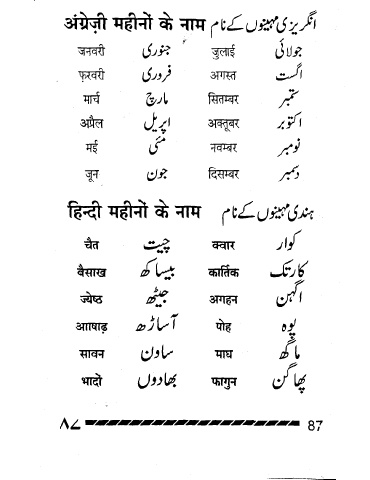 अंग्रेज़ी महीनों के नाम انگریزی مہینوں کے نام
जनवरी جنوری जुलाई جولائی
फ़रवरी فروری अगस्त اگست
मार्च مارچ सितम्बर ستمبر
अप्रैल اپریل अक्तूबर اکتوبر
मई مئی नवम्बर نومبر
जून جون दिसम्बर دسمبر
हिन्दी महीनों के नाम ہندی مہینوں کے نام
चैत چیت क्वार کوار
वैसाख بیساکھ कार्तिक کارتک
ज्येष्ठ جیٹھ अगहन اگہن
आाषाढ़ آساڑھ पोह پوہ
सावन ساون माघ ماگھ
भादों بھادوں फागुन پھاگن
۸۷ 87